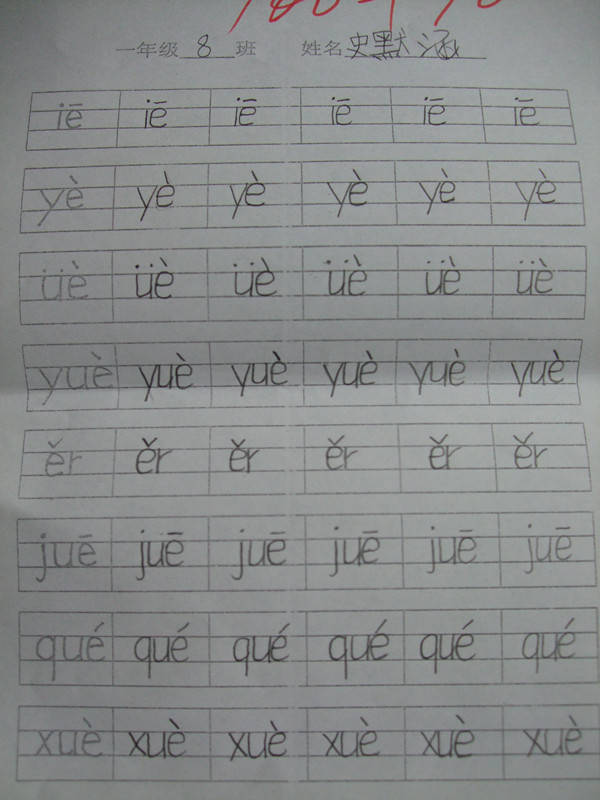 一年级 8 班 姓名 史默涵
iē iē iē iē iē iē
yè yè yè yè yè yè
üè üè üè üè üè üè
yuè yuè yuè yuè yuè yuè
ěr ěr ěr ěr ěr ěr
juē juē juē juē juē juē
qué qué qué qué qué qué
xuè xuè xuè xuè xuè xuè